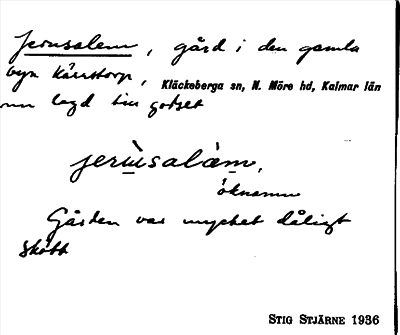 Jerusalem, gård i den gamla
byn Kärrstorp, Kläckeberga sn, N. Möre hd, Kalmar län
nu lagd till godset
jerùsalàm,
öknamn
Gården var mycket dåligt
skött
STIG STJÄRNE 1936